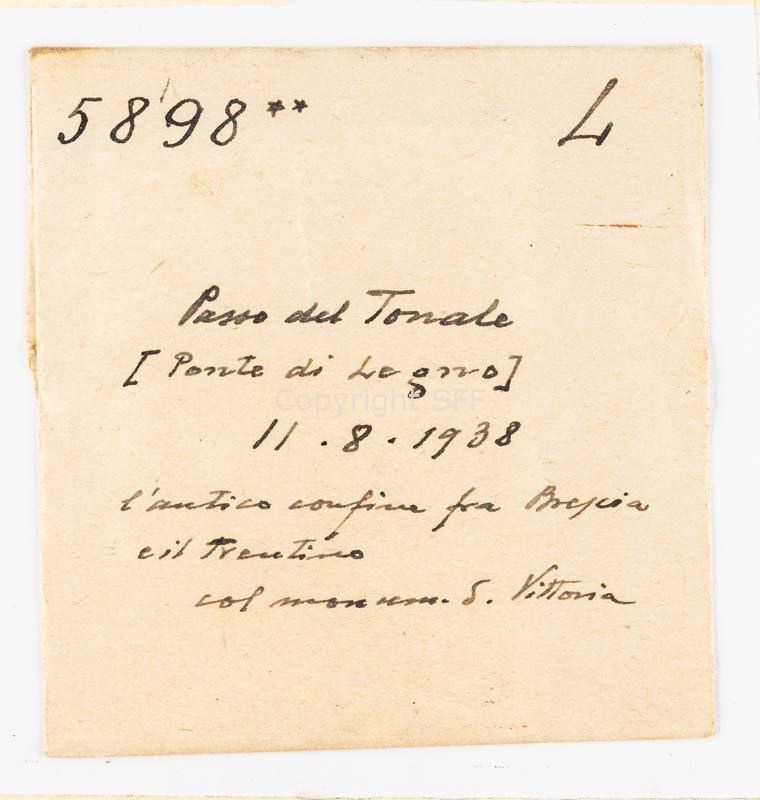 5898** L
Passo del Tonale
[Ponte di Legno]
Copyright SFF
11.8.1938
l'antico confine fra Brescia
e il Trentino
col monum. d. Vittoria